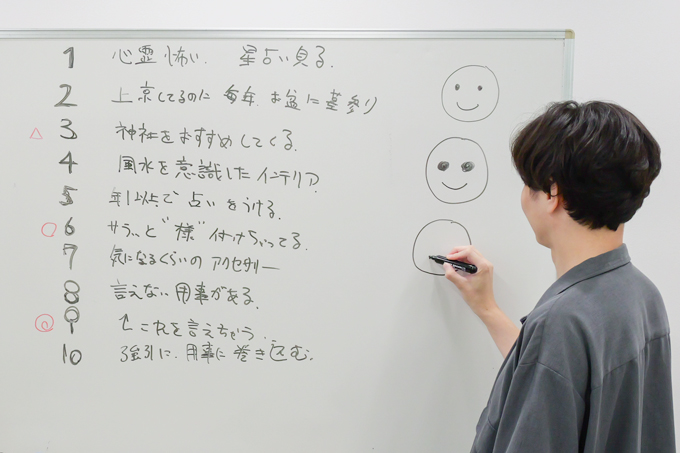 1 心霊怖い. 星占い見る.
2 上京してるのに 毎年 お盆に墓参り
3 神社をおすすめしてくる.
4 風水を意識したインテリア.
5 年1以上で占いをうける.
6 サラッと"様"付けちゃってる.
7 気になるくらいのアクセサリー
8 言えない用事がある.
9 ↑これを言えちゃう.
10 強引に.用事に巻き込む.